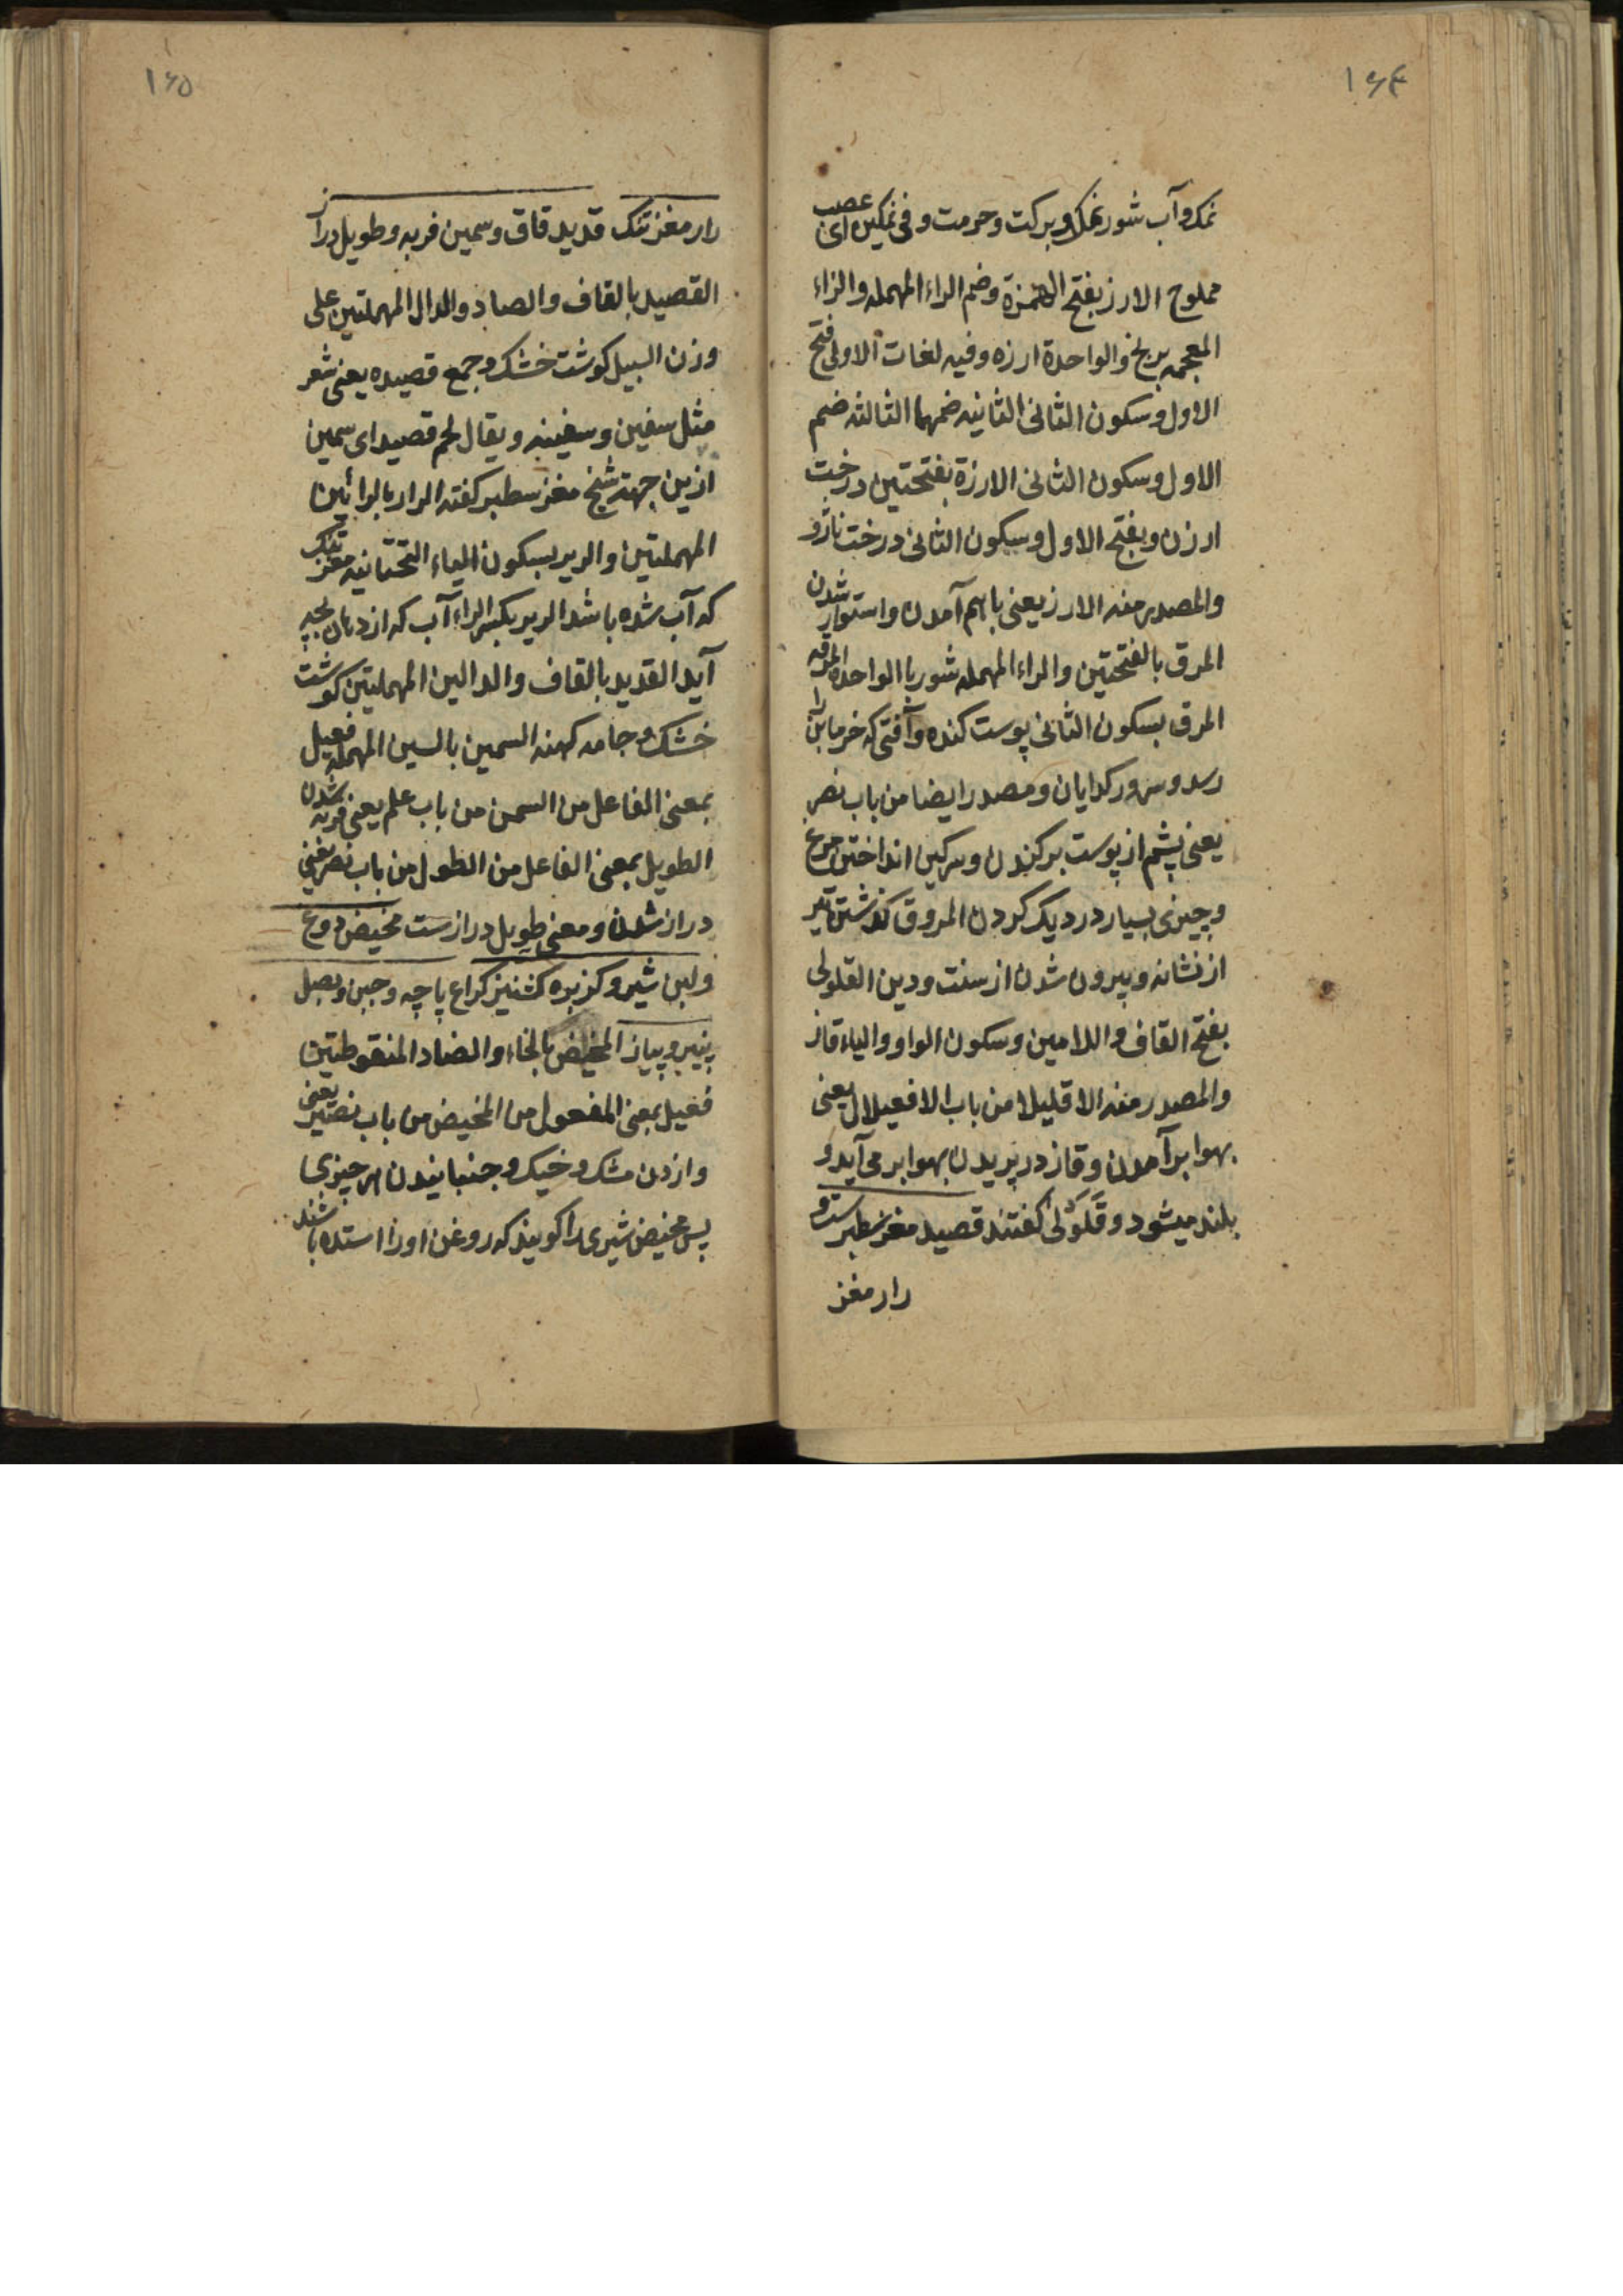 ۱۶۴
نمک و آب شور نمک و برکت و حرمت و فی نمکین ای عصب
مملوح الارز بفتح الهمزة وضم الراء المهمله والزاء
المعجمه برنج والواحدة ارزه وفیه لغات الاولی فتح
الاول وسکون الثانی الثانیه ضمهما الثالثه ضم
الاول وسکون الثانی الارزة بفتحتین درخت
ارزن وبفتح الاول وسکون الثانی درخت ناژو
والمصدر منه الارز یعنی باهم آمدن واستوار شدن
المرق بالفتحتین والراء المهمله شوربا الواحدة المرقه
المرق بسکون الثانی پوست کنده وآفتی که خرمابن را
رسد وسرور کدایان ومصدر ایضا من باب نصر
یعنی پشم از پوست برکندن وسرکین انداختن مرغ
وچیزی بسیار در دیک کردن المروق کذشتن تیر
از نشانه وبیرون شدن از سنت ودین القلولی
بفتح القاف واللامین وسکون الواو والیاء قاز
والمصدر منه الاقلیلا من باب الافعیلال یعنی
بهوا برآمدن وقاز در پریدن بهوا بر می آید و
بلند میشود وقلولی کفتند قصید مغز سطبرست و
رار مغز
۱۶۵
رار مغز تنک قدید قاق وسمین فربه وطویل دراز
القصید بالقاف والصاد والدال المهملتین علی
وزن السبیل کوشت خشک وجمع قصیده یعنی شعر
مثل سفین وسفینه ویقال لحم قصید ای سمین
ازین جهة شیخ مغز سطبر کفته الرار بالرائین
المهملتین والریر بسکون الیاء التحتانیه مغز تنک
که آب شده باشد الریر بکسر الراء آب که از دهان بچه
آید القدید بالقاف والدالین المهملتین کوشت
خشک وجامه کهنه السمین بالسین المهمله فعیل
بمعنی الفاعل من السمن من باب علم یعنی فربه شدن
الطویل بمعنی الفاعل من الطول من باب نصر یعنی
دراز شدن ومعنی طویل درازست مخیض دوغ
ولبن شیر وکزبره کشنیز کراع پاچه وجبن وبصل
پنیر وپیاز المخیض بالخاء والضاد المنقوطتین
فعیل بمعنی المفعول من المخیض من باب نصر یعنی
وازدن مشک وخیک وجنبانیدن هر چیزی
پس مخیض شیری را کویند که روغن اورا استده باشند